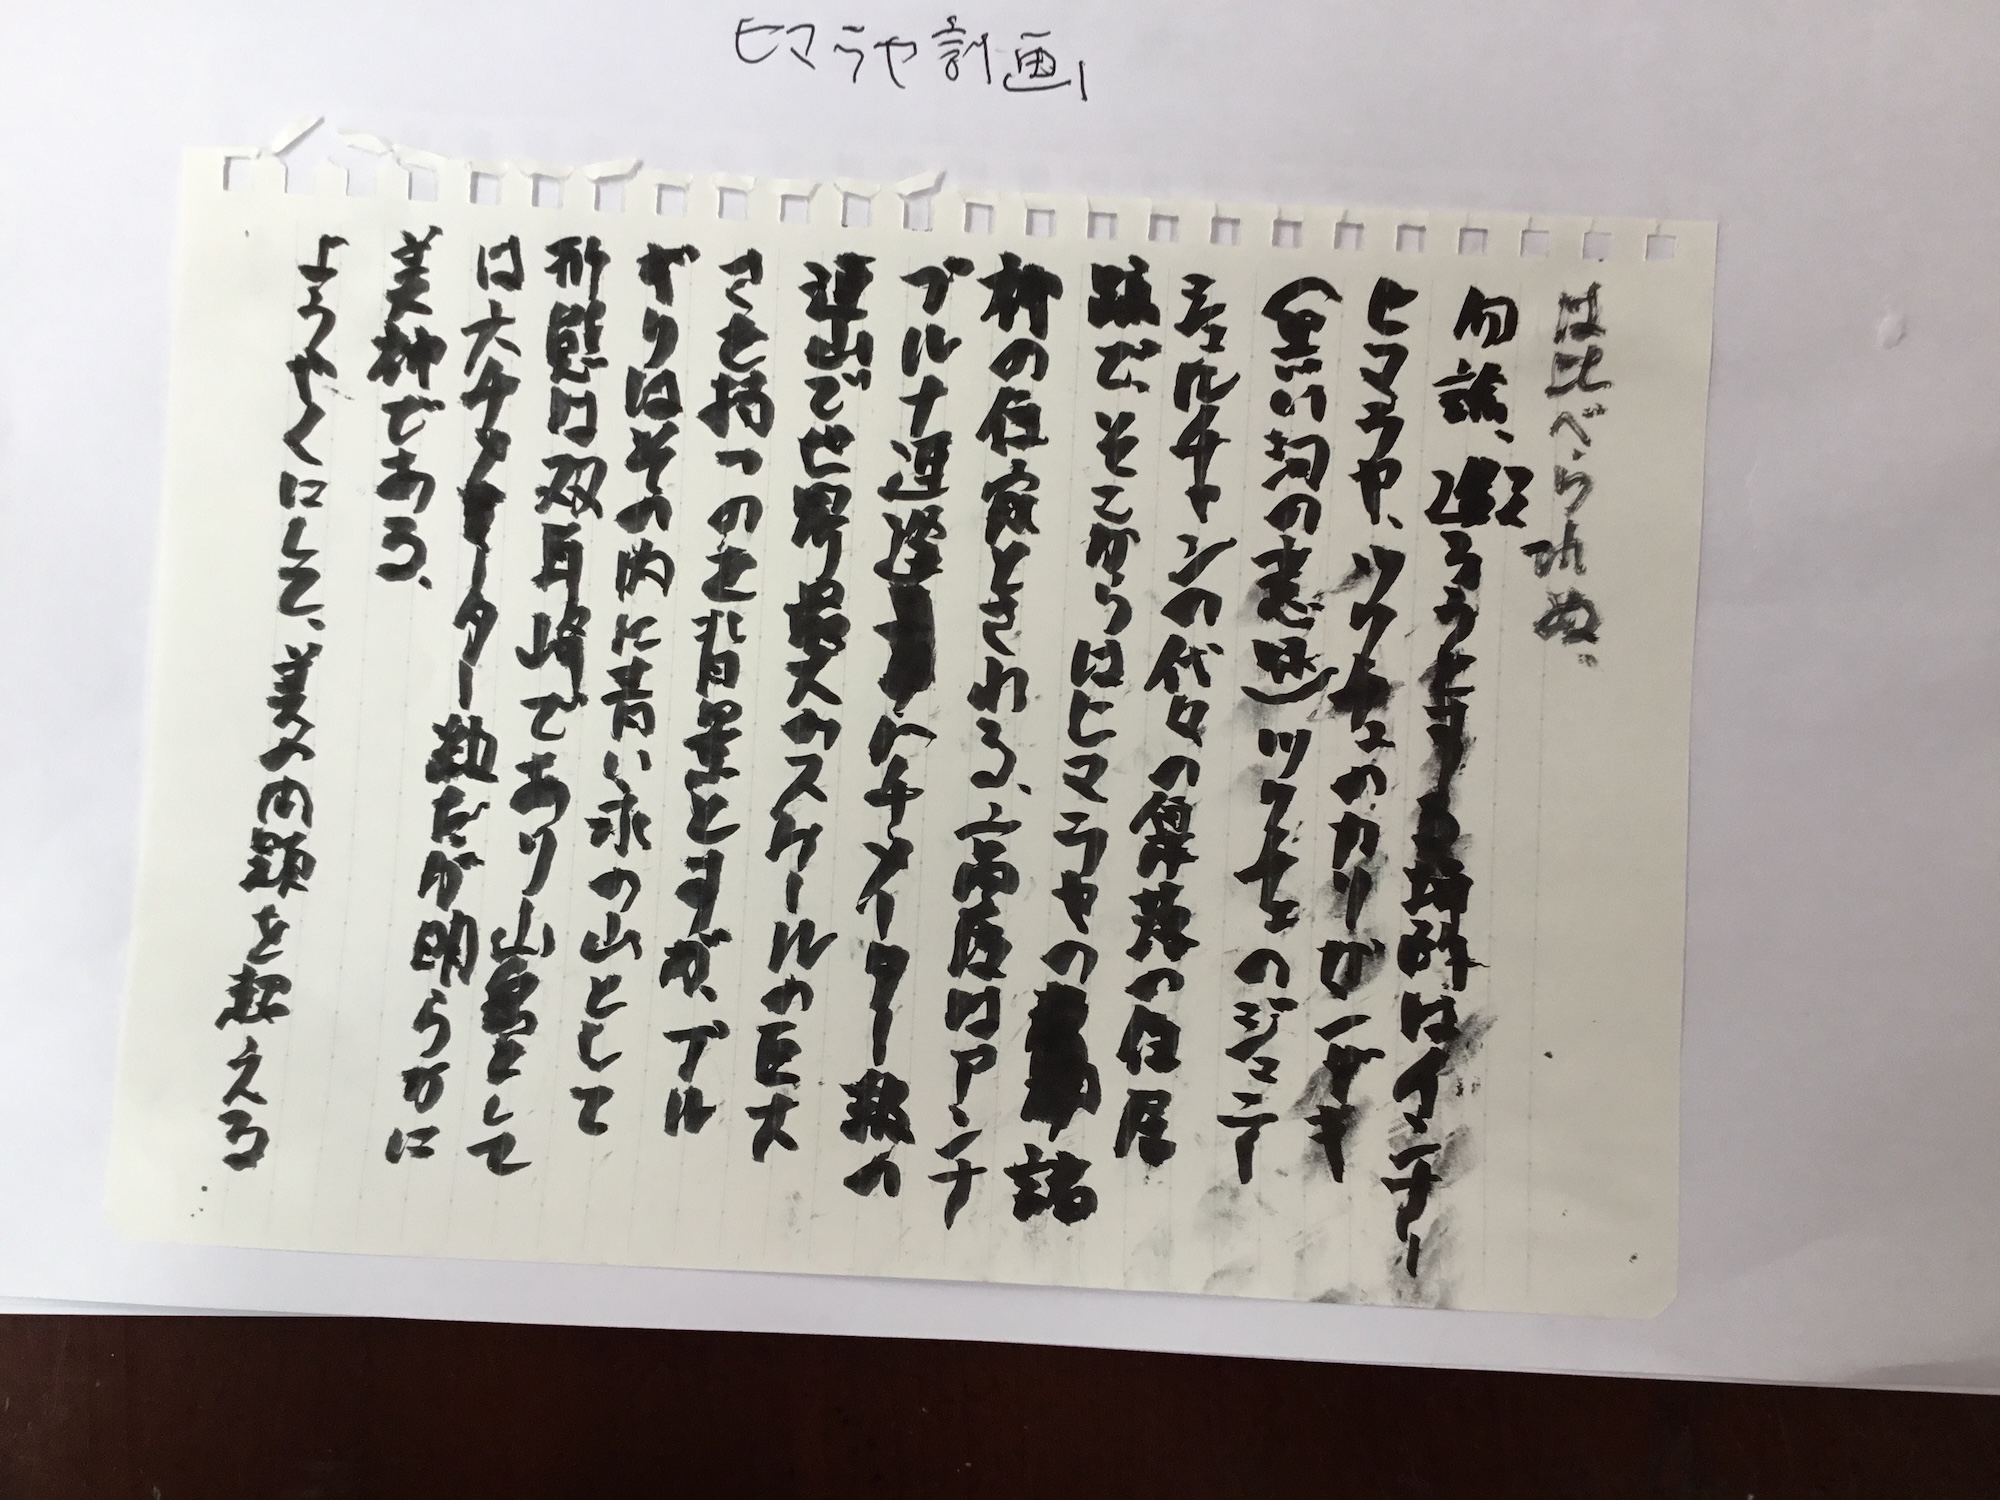 ヒマラヤ計画
は比べられぬ、
勿論、巡ろうヒマラヤの は インナー
ヒマラヤ、ツクチェのカリガンダキ
(黒い河の意思)ツクチェのジュニー
シェルチャンの代々の の住居
跡で、そこからはヒマラヤの 諸
神の住家とされる、 高度はアンナ
プルナ連邊 八千メーター級の
連山で世界最大のスケールの巨大
さを持つのを背景とするが、プル
ギリはその内に青い氷の山として
形態は双耳峰であり山 として
は六千メーター級だが明らかに
美神である、
ようやくにして、美の内題を越える